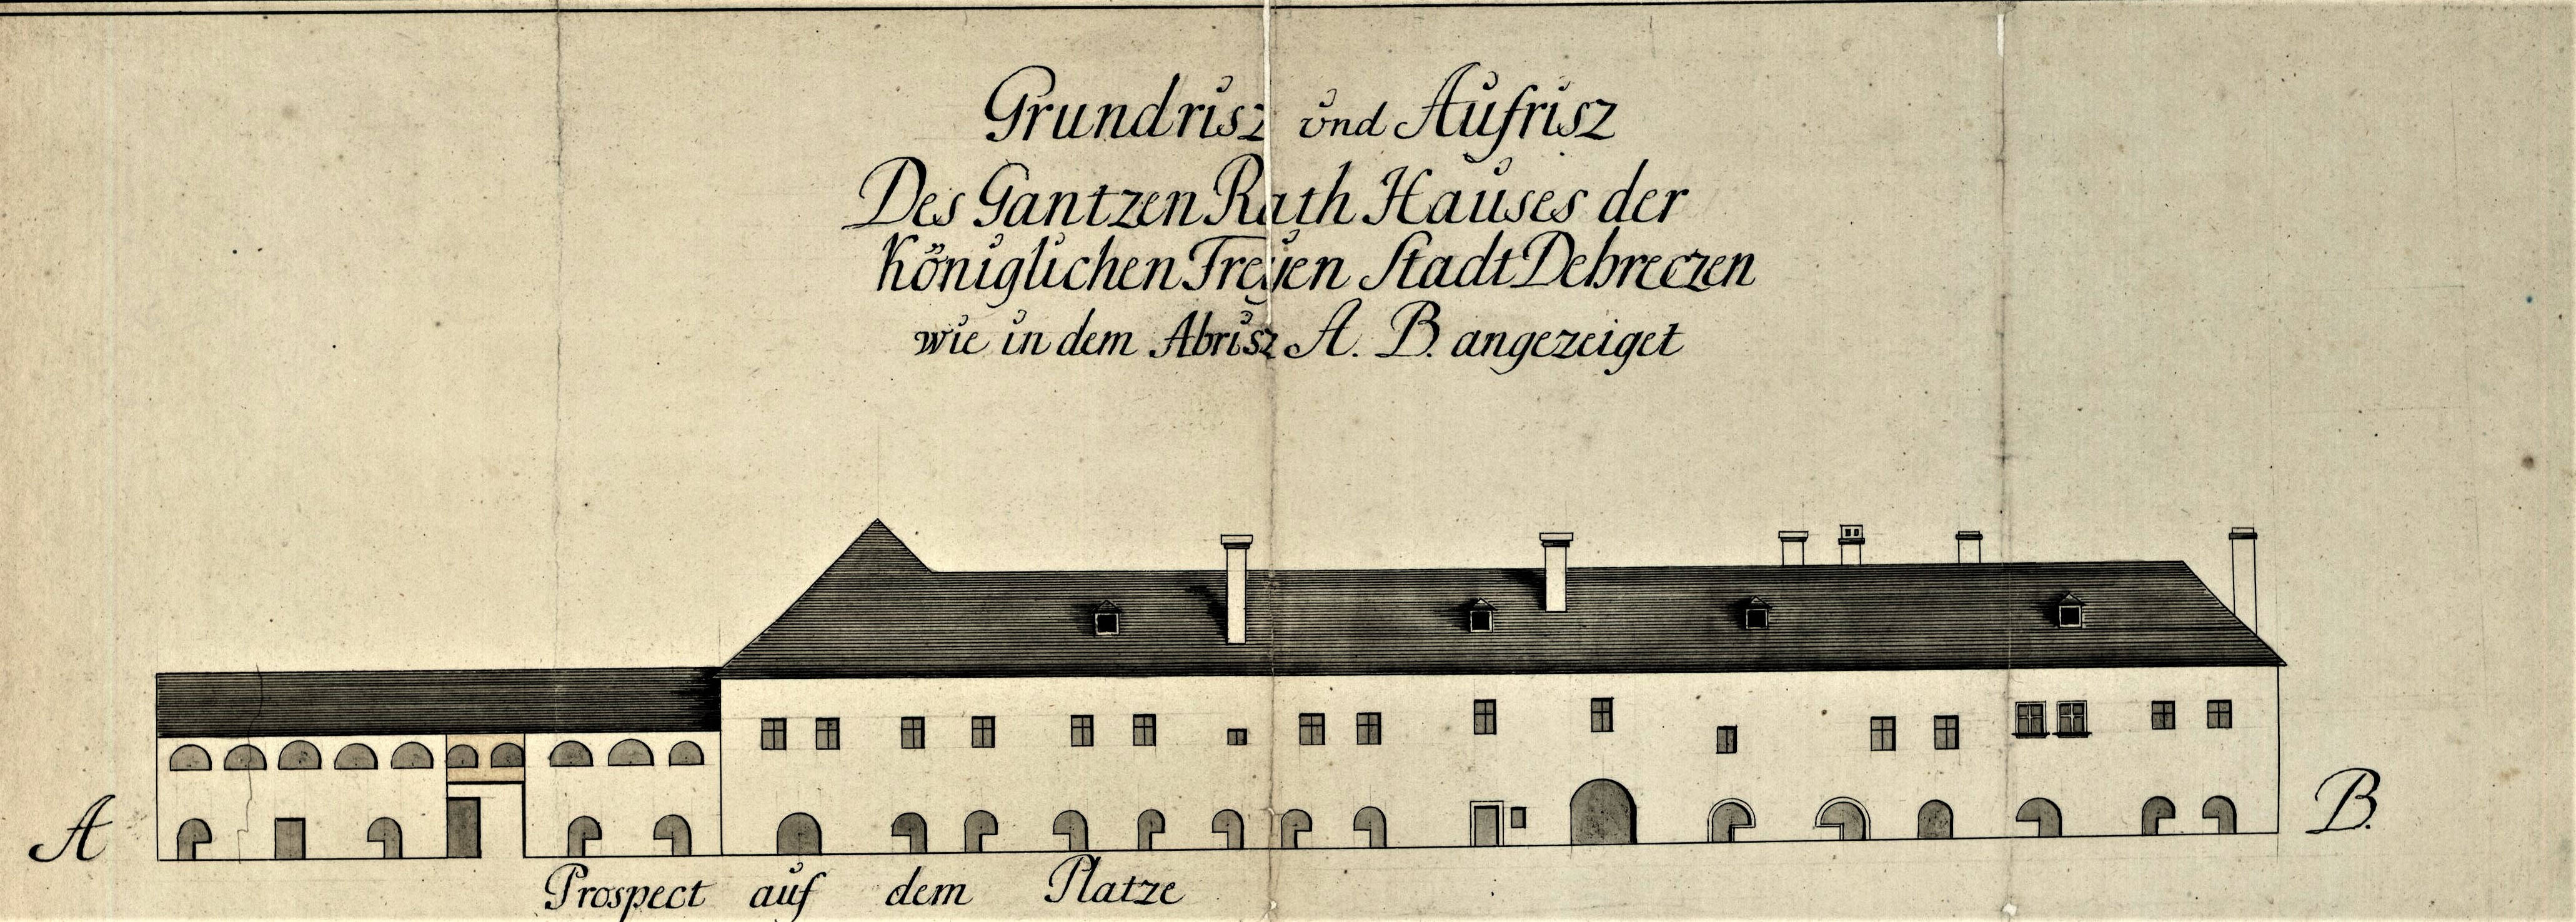 Grundrisz und Aufrisz
Des Gantzen Rath Hauses der
Königlichen Freyen Stadt Debreczen
wie in dem Abrisz A. B. angezeiget
A
B.
Prospect auf dem Platze